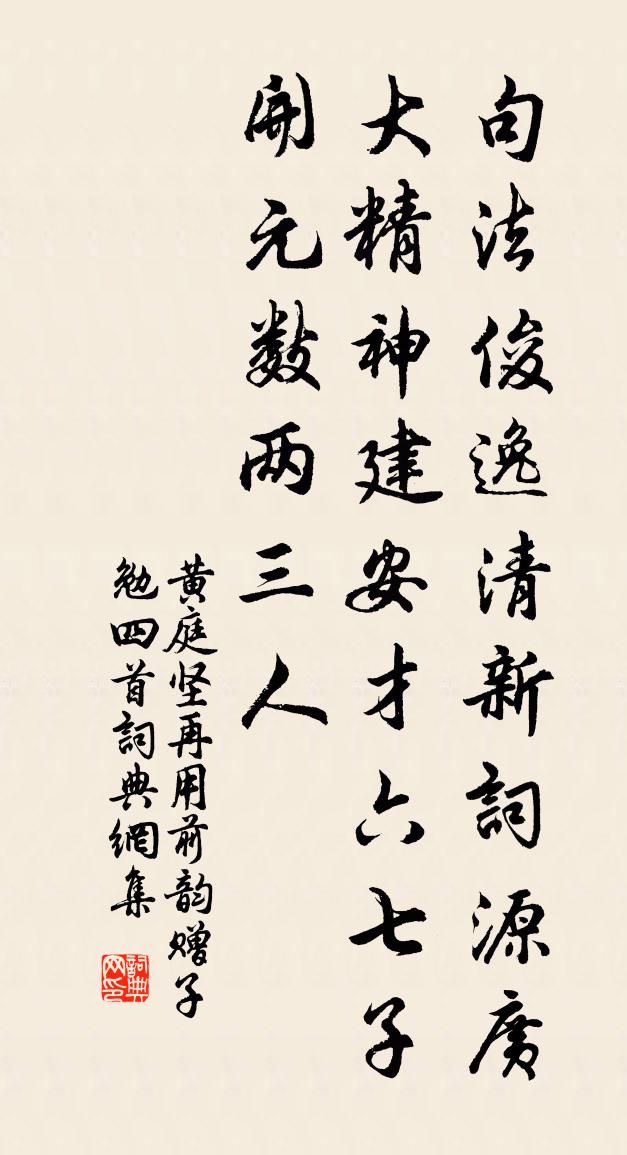 句法俊逸清新詞源廣
大精神建安才六七子
開元数两三人
黄庭坚再用前韵赠子
勉四首詞典網集
詞典网印